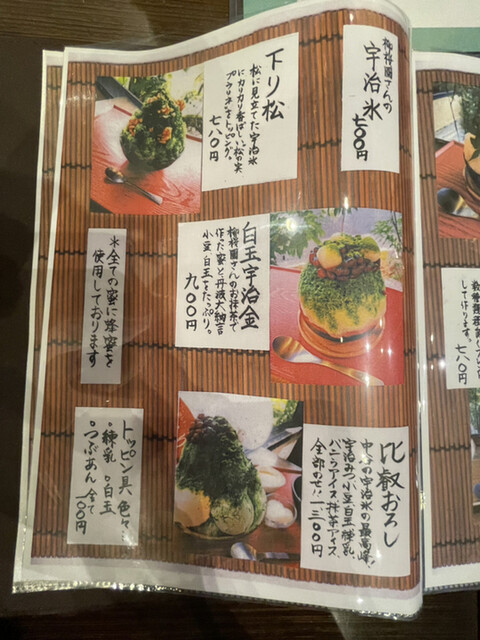 柳桜園さんの
宇治氷
七〇〇円
下り松
松に見立てた宇治氷
にカリカリ香ばしい松の実
プラリネをトッピング。
七八〇円
白玉宇治金
柳桜園さんのお抹茶で
作った蜜と丹波大納言
小豆・白玉をたっぷり。
九〇〇円
*全ての蜜に蜂蜜を
使用しております
比叡おろし
中谷の宇治氷の最高峰!
宇治みつ、小豆、白玉、練乳、
バニラアイス、抹茶アイス、
全部のせ!!一三〇〇円
トッピング具、色々
・練乳・白玉
・つぶあん 全て
一〇〇円
して作ります。
七八〇円